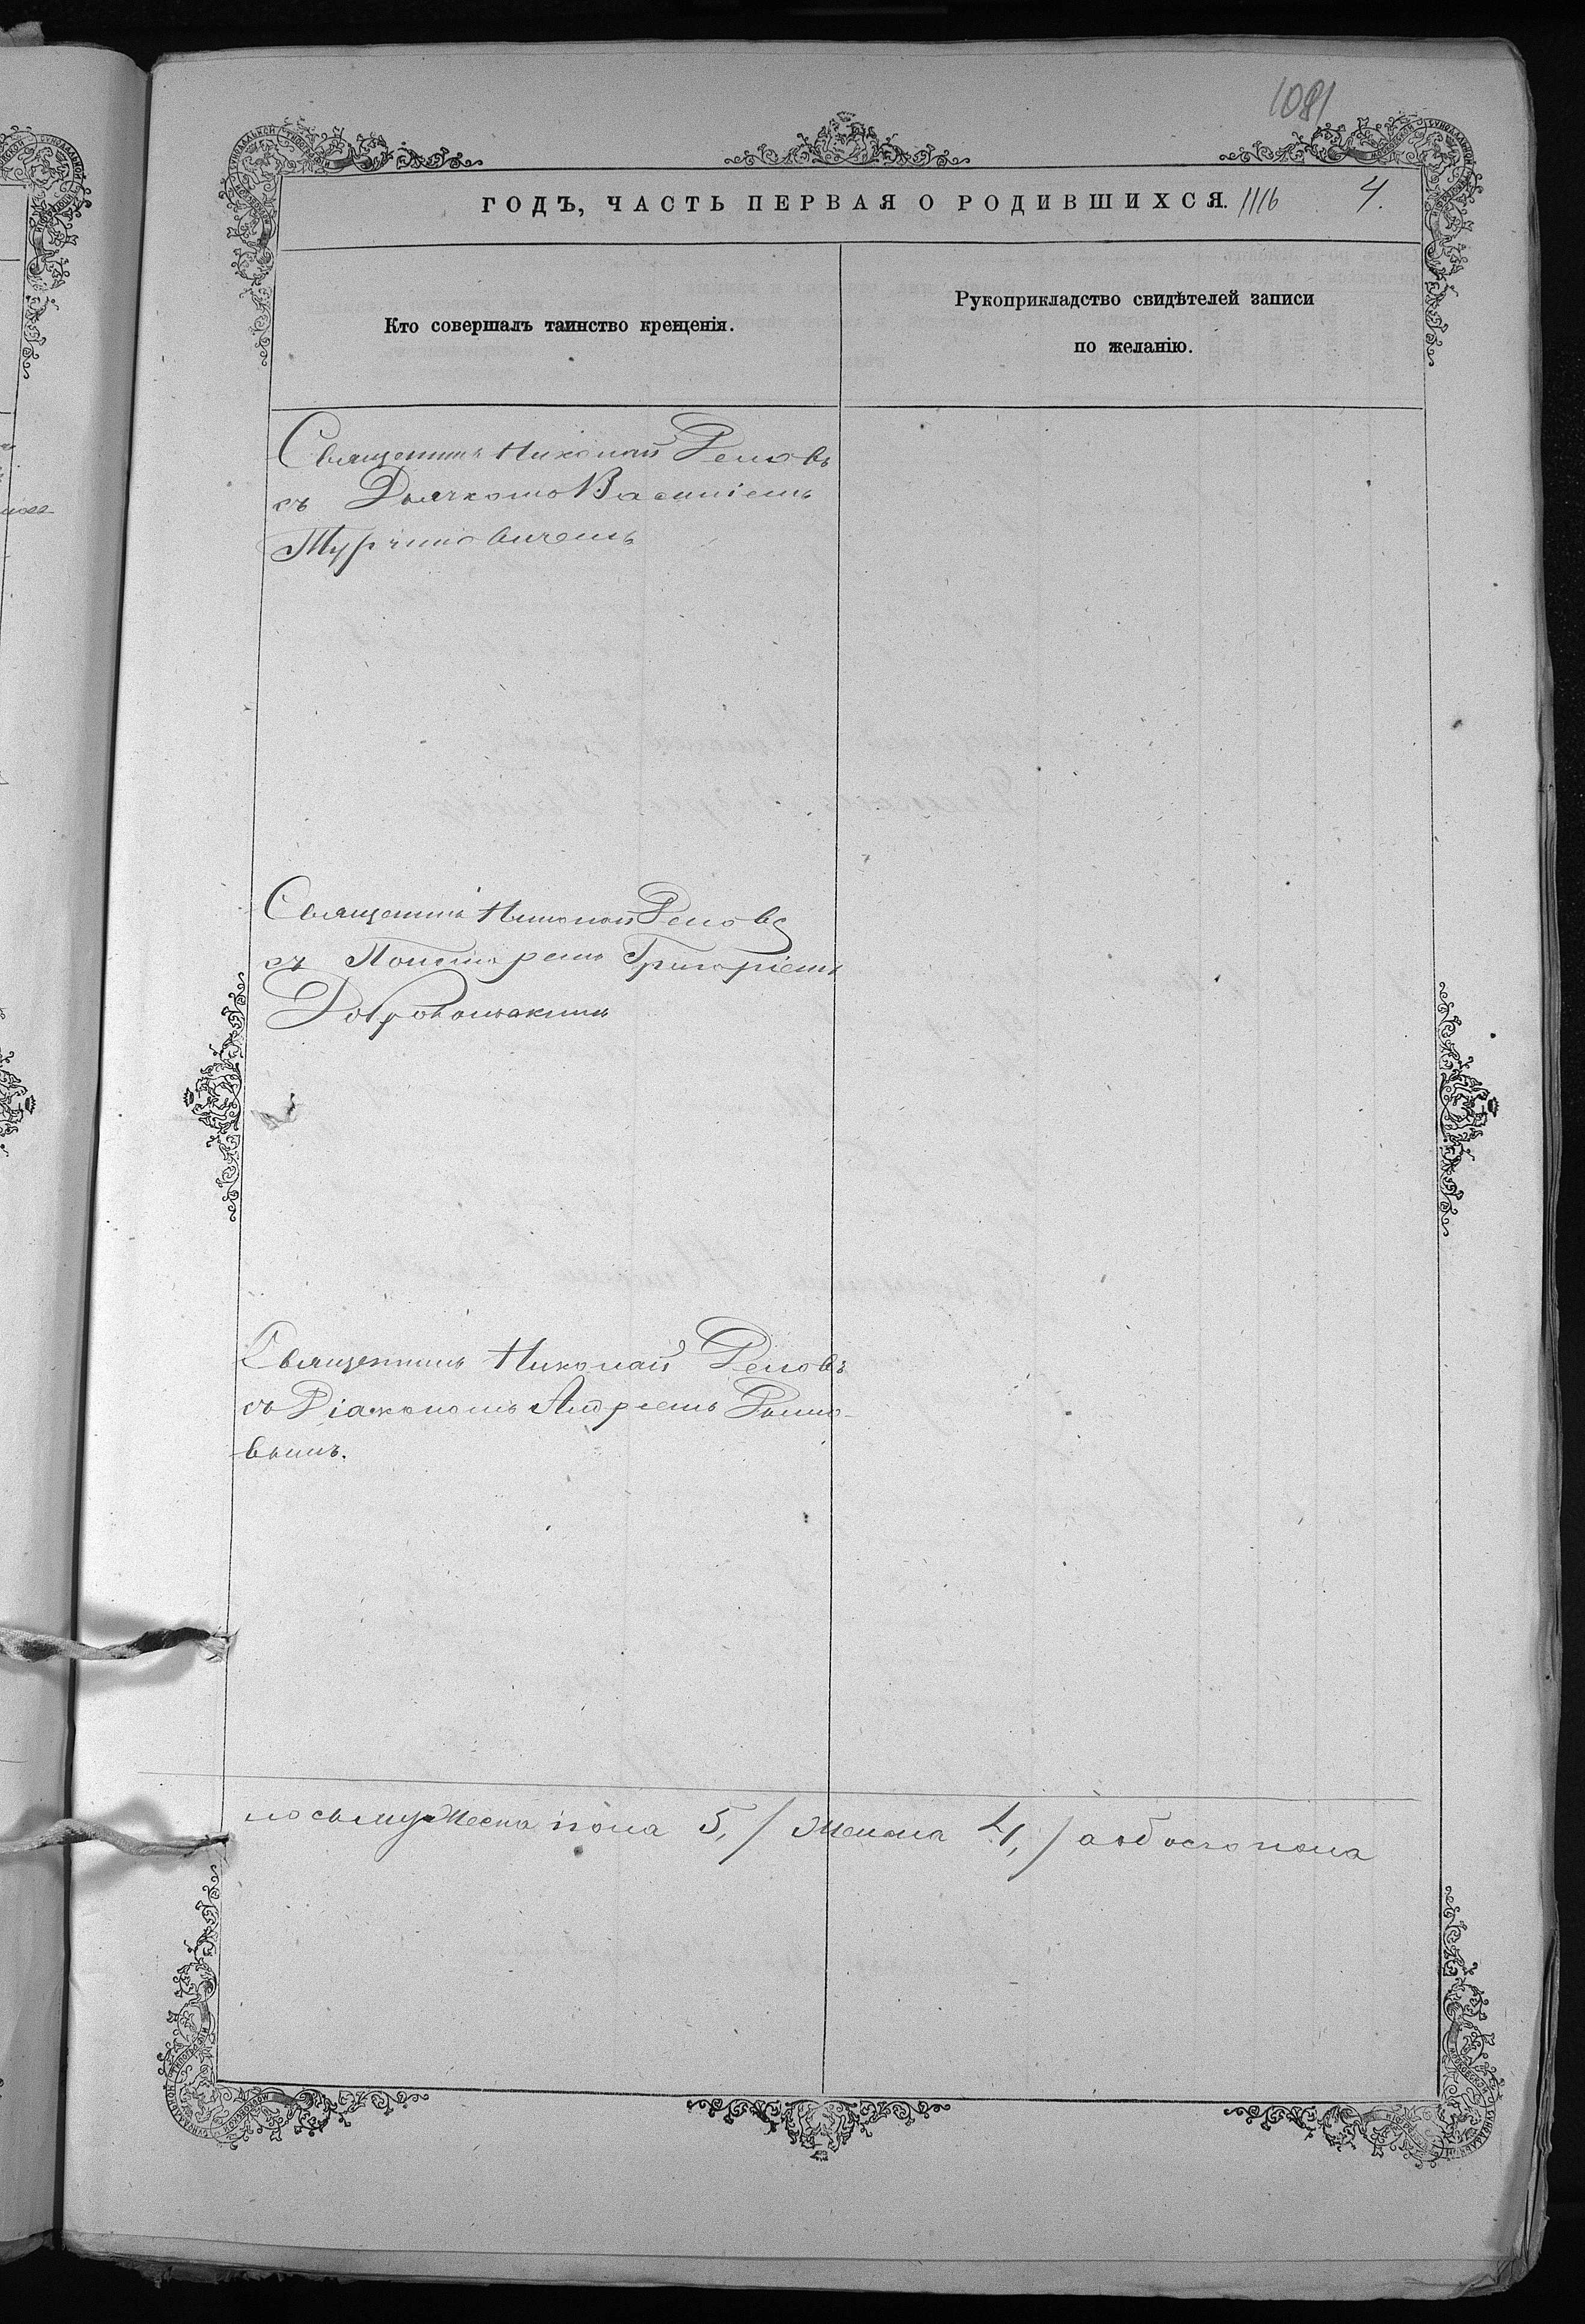 1081
ГОДЪ, ЧАСТЬ ПЕРВАЯ О РОДИВШИХСЯ. 1116 4.
Кто совершалъ таинство крещенія.
Рукоприкладство свидѣтелей записи
по желанію.
Священникъ Николай Реловъ
съ Дьячкомъ Василіемъ
Турчиновичемъ
Священникъ Николай Реловъ
съ Пономаремъ Григоріемъ
Добровольскимъ
Священникъ Николай Реловъ
съ Діакономъ Андреемъ
вымъ.
мужеска пола 5, / женска 4, / а обоего пола